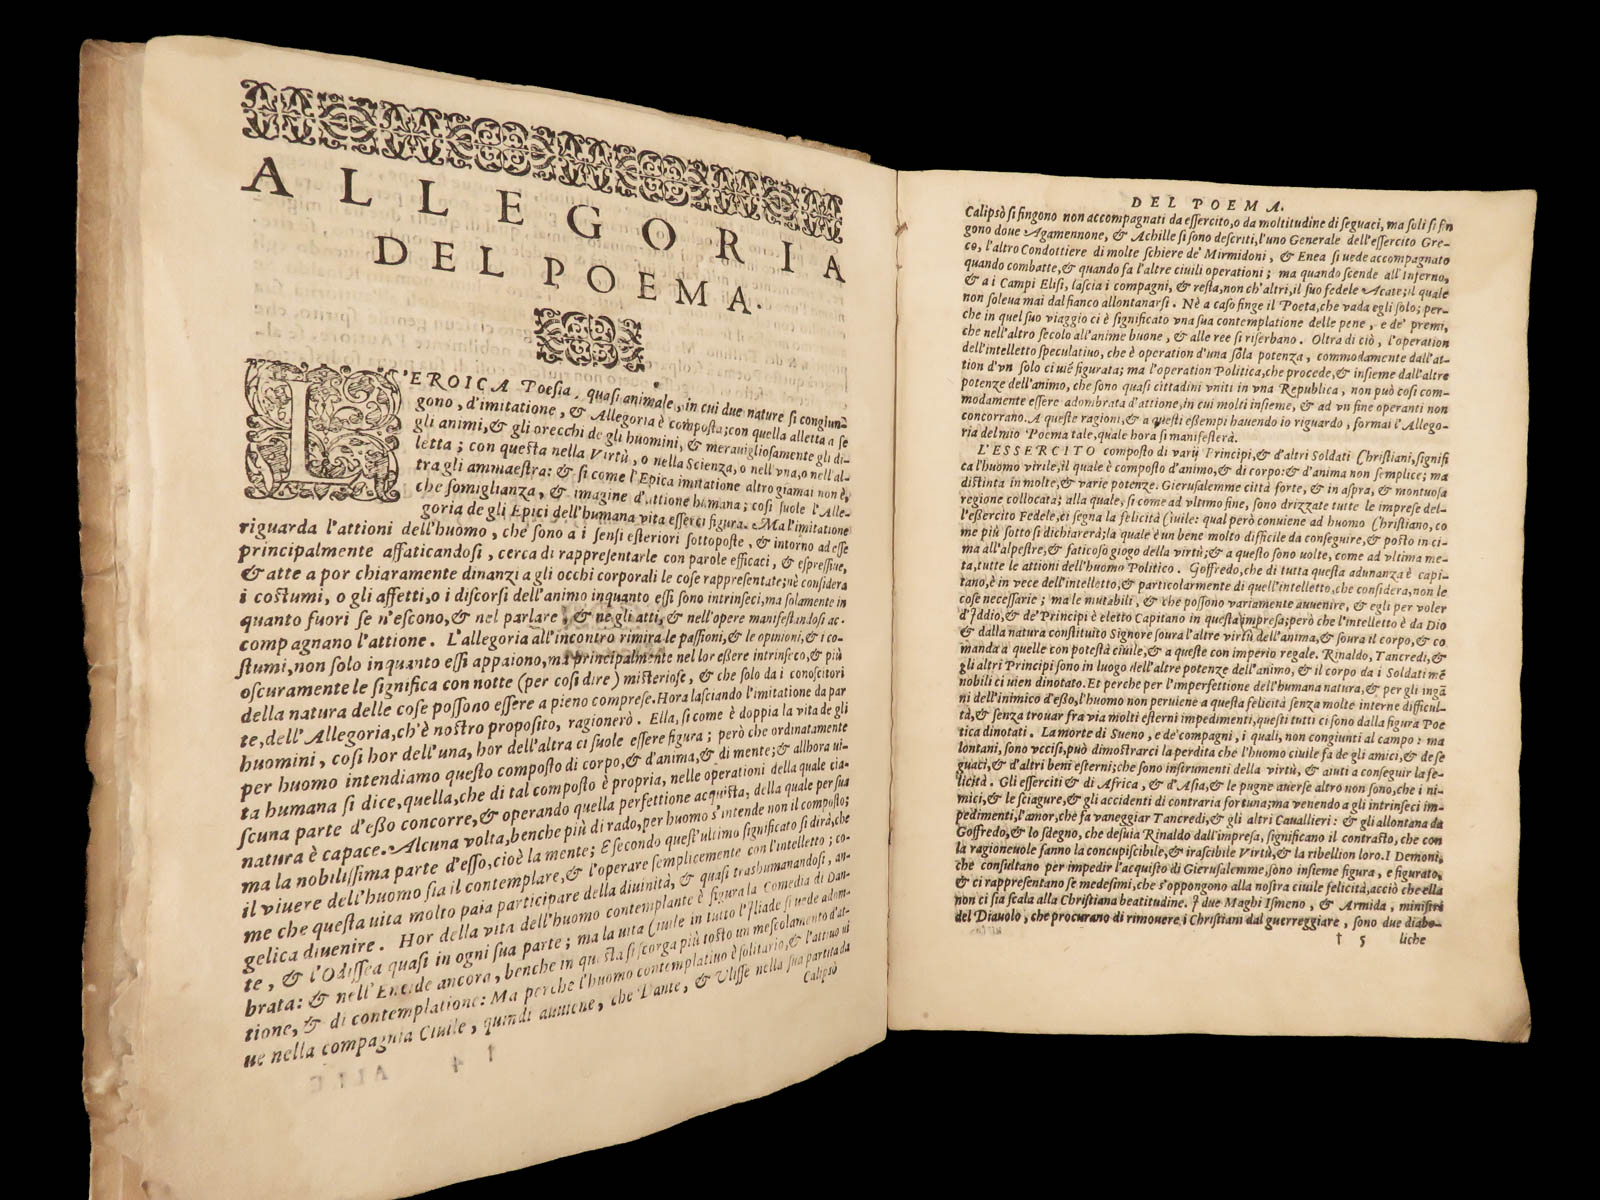 ALLEGORIA
DEL POEMA.
L'EROICA Poesia, quasi animale, in cui due nature si congiun-
gono, d'imitatione, & Allegoria è composta; con quella alletta a se
gli animi, & gli orecchi de gli huomini, & merauigliosamente gli di-
letta; con questa nella Virtù, o nella Scienza, o nell'vna, o nell'al-
tra gli ammaestra: & si come l'Epica imitatione altro giamai non è,
che somiglianza, & imagine d'attione humana; cosi suole l'Alle-
goria de gli Epici dell'humana vita esserci figura. Ma l'imitatione
riguarda l'attioni dell'huomo, che sono a i sensi esteriori sottoposte, & intorno ad esse
principalmente affaticandosi, cerca di rappresentarle con parole efficaci, & espressiue,
& atte a por chiaramente dinanzi a gli occhi corporali le cose rappresentate; nè considera
i costumi, o gli affetti, o i discorsi dell'animo inquanto essi sono intrinseci, ma solamente in
quanto fuori se n'escono, & nel parlare, & ne gli atti, & nell'opere manifestandosi ac-
compagnano l'attione. L'allegoria all'incontro rimira le passioni, & le opinioni, & i co-
stumi, non solo inquanto essi appaiono, ma principalmente nel lor essere intrinseco, & più
oscuramente le significa con notte (per cosi dire) misteriose, & che solo da i conoscitori
della natura delle cose possono essere a pieno comprese. Hora lasciando l'imitatione da par
te, dell'Allegoria, ch'è nostro proposito, ragionerò. Ella, si come è doppia la vita de gli
huomini, cosi hor dell'una, hor dell'altra ci suole essere figura; però che ordinatamente
per huomo intendiamo questo composto di corpo, & d'anima, & di mente; & allhora ui-
ta humana si dice, quella, che di tal composto è propria, nelle operationi della quale cia-
scuna parte d'esso concorre, & operando quella perfettione acquista, della quale per sua
natura è capace. Alcuna volta, benche più di rado, per huomo s'intende non il composto;
ma la nobilissima parte d'esso, cioè la mente; E secondo quest'ultimo significato si dirà, che
il viuere dell'huomo sia il contemplare, & l'operare semplicemente con l'intelletto; co-
me che questa uita molto paia participare della diuinità, & quasi trashumanandosi, an-
gelica diuenire. Hor della vita dell'huomo contemplante è figura la Comedia di Dan-
te, & l'Odissea quasi in ogni sua parte; ma la uita Ciuile in tutto l'Iliade si uede adom-
brata: & nell'Eneide ancora, benche in questa si scorga più tosto un mescolamento d'at-
tione, & di contemplatione: Ma perche l'huomo contemplatiuo è solitario, & l'attiuo ui
ue nella compagnia Ciuile, quindi auuiene, che Dante, & Ulisse nella sua partita da
Calipsò
DEL POEMA.
Calipsò si fingono non accompagnati da essercito, o da moltitudine di seguaci, ma soli si fin
gono doue Agamennone, & Achille si sono descritti, l'uno Generale dell'essercito Gre-
co, l'altro Condottiere di molte schiere de' Mirmidoni, & Enea si uede accompagnato
quando combatte, & quando fa l'altre ciuili operationi; ma quando scende all'Inferno,
& a i Campi Elisi, lascia i compagni, & resta, non ch'altri, il suo fedele Acate; il quale
non soleua mai dal fianco allontanarsi. Nè a caso finge il Poeta, che vada egli solo; per-
che in quel suo viaggio ci è significato vna sua contemplatione delle pene, e de' premi,
che nell'altro secolo all'anime buone, & alle ree si riserbano. Oltra di ciò, l'operation
dell'intelletto speculatiuo, che è operation d'una sola potenza, commodamente dall'at-
tion d'vn solo ci uiẽ figurata; ma l'operation Politica, che procede, & insieme dall'altre
potenze dell'animo, che sono quasi cittadini vniti in vna Republica, non può cosi com-
modamente essere adombrata d'attione, in cui molti insieme, & ad vn fine operanti non
concorrano. A queste ragioni, & a questi essempi hauendo io riguardo, formai l'Allego-
ria del mio Poema tale, quale hora si manifesterà.
L'ESSERCITO composto di varij Principi, & d'altri Soldati Christiani, signifi
ca l'huomo virile, il quale è composto d'animo, & di corpo: & d'anima non semplice; ma
distinta in molte, & varie potenze. Gierusalemme città forte, & in aspra, & montuosa
regione collocata; alla quale, si come ad vltimo fine, sono drizzate tutte le imprese del-
l'essercito Fedele, ci segna la felicità Ciuile: qual però conuiene ad huomo Christiano, co
me più sotto si dichiarerà; la quale è un bene molto difficile da conseguire, & posto in ci-
ma all'alpestre, & faticoso giogo della virtù; & a questo sono uolte, come ad vltima me-
ta, tutte le attioni dell'huomo Politico. Goffredo, che di tutta questa adunanza è capi-
tano, è in vece dell'intelletto, & particolarmente di quell'intelletto, che considera, non le
cose necessarie; ma le mutabili, & che possono variamente auuenire, & egli per voler
d'Iddio, & de' Principi è eletto Capitano in questa impresa; però che l'intelletto è da Dio
& dalla natura constituito Signore soura l'altre virtù dell'anima, & soura il corpo, & co
manda a quelle con potestà ciuile, & a queste con imperio regale. Rinaldo, Tancredi, &
gli altri Principi sono in luogo dell'altre potenze dell'animo, & il corpo da i Soldati mẽ
nobili ci uien dinotato. Et perche per l'imperfettione dell'humana natura, & per gli ingã
ni dell'inimico d'esso, l'huomo non peruiene a questa felicità senza molte interne difficul-
tà, & senza trouar fra via molti esterni impedimenti, questi tutti ci sono dalla figura Poe
tica dinotati. La morte di Sueno, e de' compagni, i quali, non congiunti al campo: ma
lontani, sono vccisi, può dimostrarci la perdita che l'huomo ciuile fa de gli amici, & de se
guaci, & d'altri beni esterni; che sono instrumenti della virtù, & aiuti a conseguir la fe-
licità. Gli esserciti & di Africa, & d'Asia, & le pugne auerse altro non sono, che i ni-
mici, & le sciagure, & gli accidenti di contraria fortuna; ma venendo a gli intrinseci im-
pedimenti, l'amor, che fa vaneggiar Tancredi, & gli altri Cauallieri: & gli allontana da
Goffredo, & lo sdegno, che desuia Rinaldo dall'impresa, significano il contrasto, che con
la ragioneuole fanno la concupiscibile, & irascibile Virtù, & la ribellion loro. I Demoni,
che consultano per impedir l'acquisto di Gierusalemme, sono insieme figura, e figurato,
& ci rappresentano se medesimi, che s'oppongono alla nostra ciuile felicità, acciò che ella
non ci sia scala alla Christiana beatitudine. I due Maghi Ismeno, & Armida, ministri
del Diauolo, che procurano di rimouere i Christiani dal guerreggiare, sono due diabo-
† 5 liche